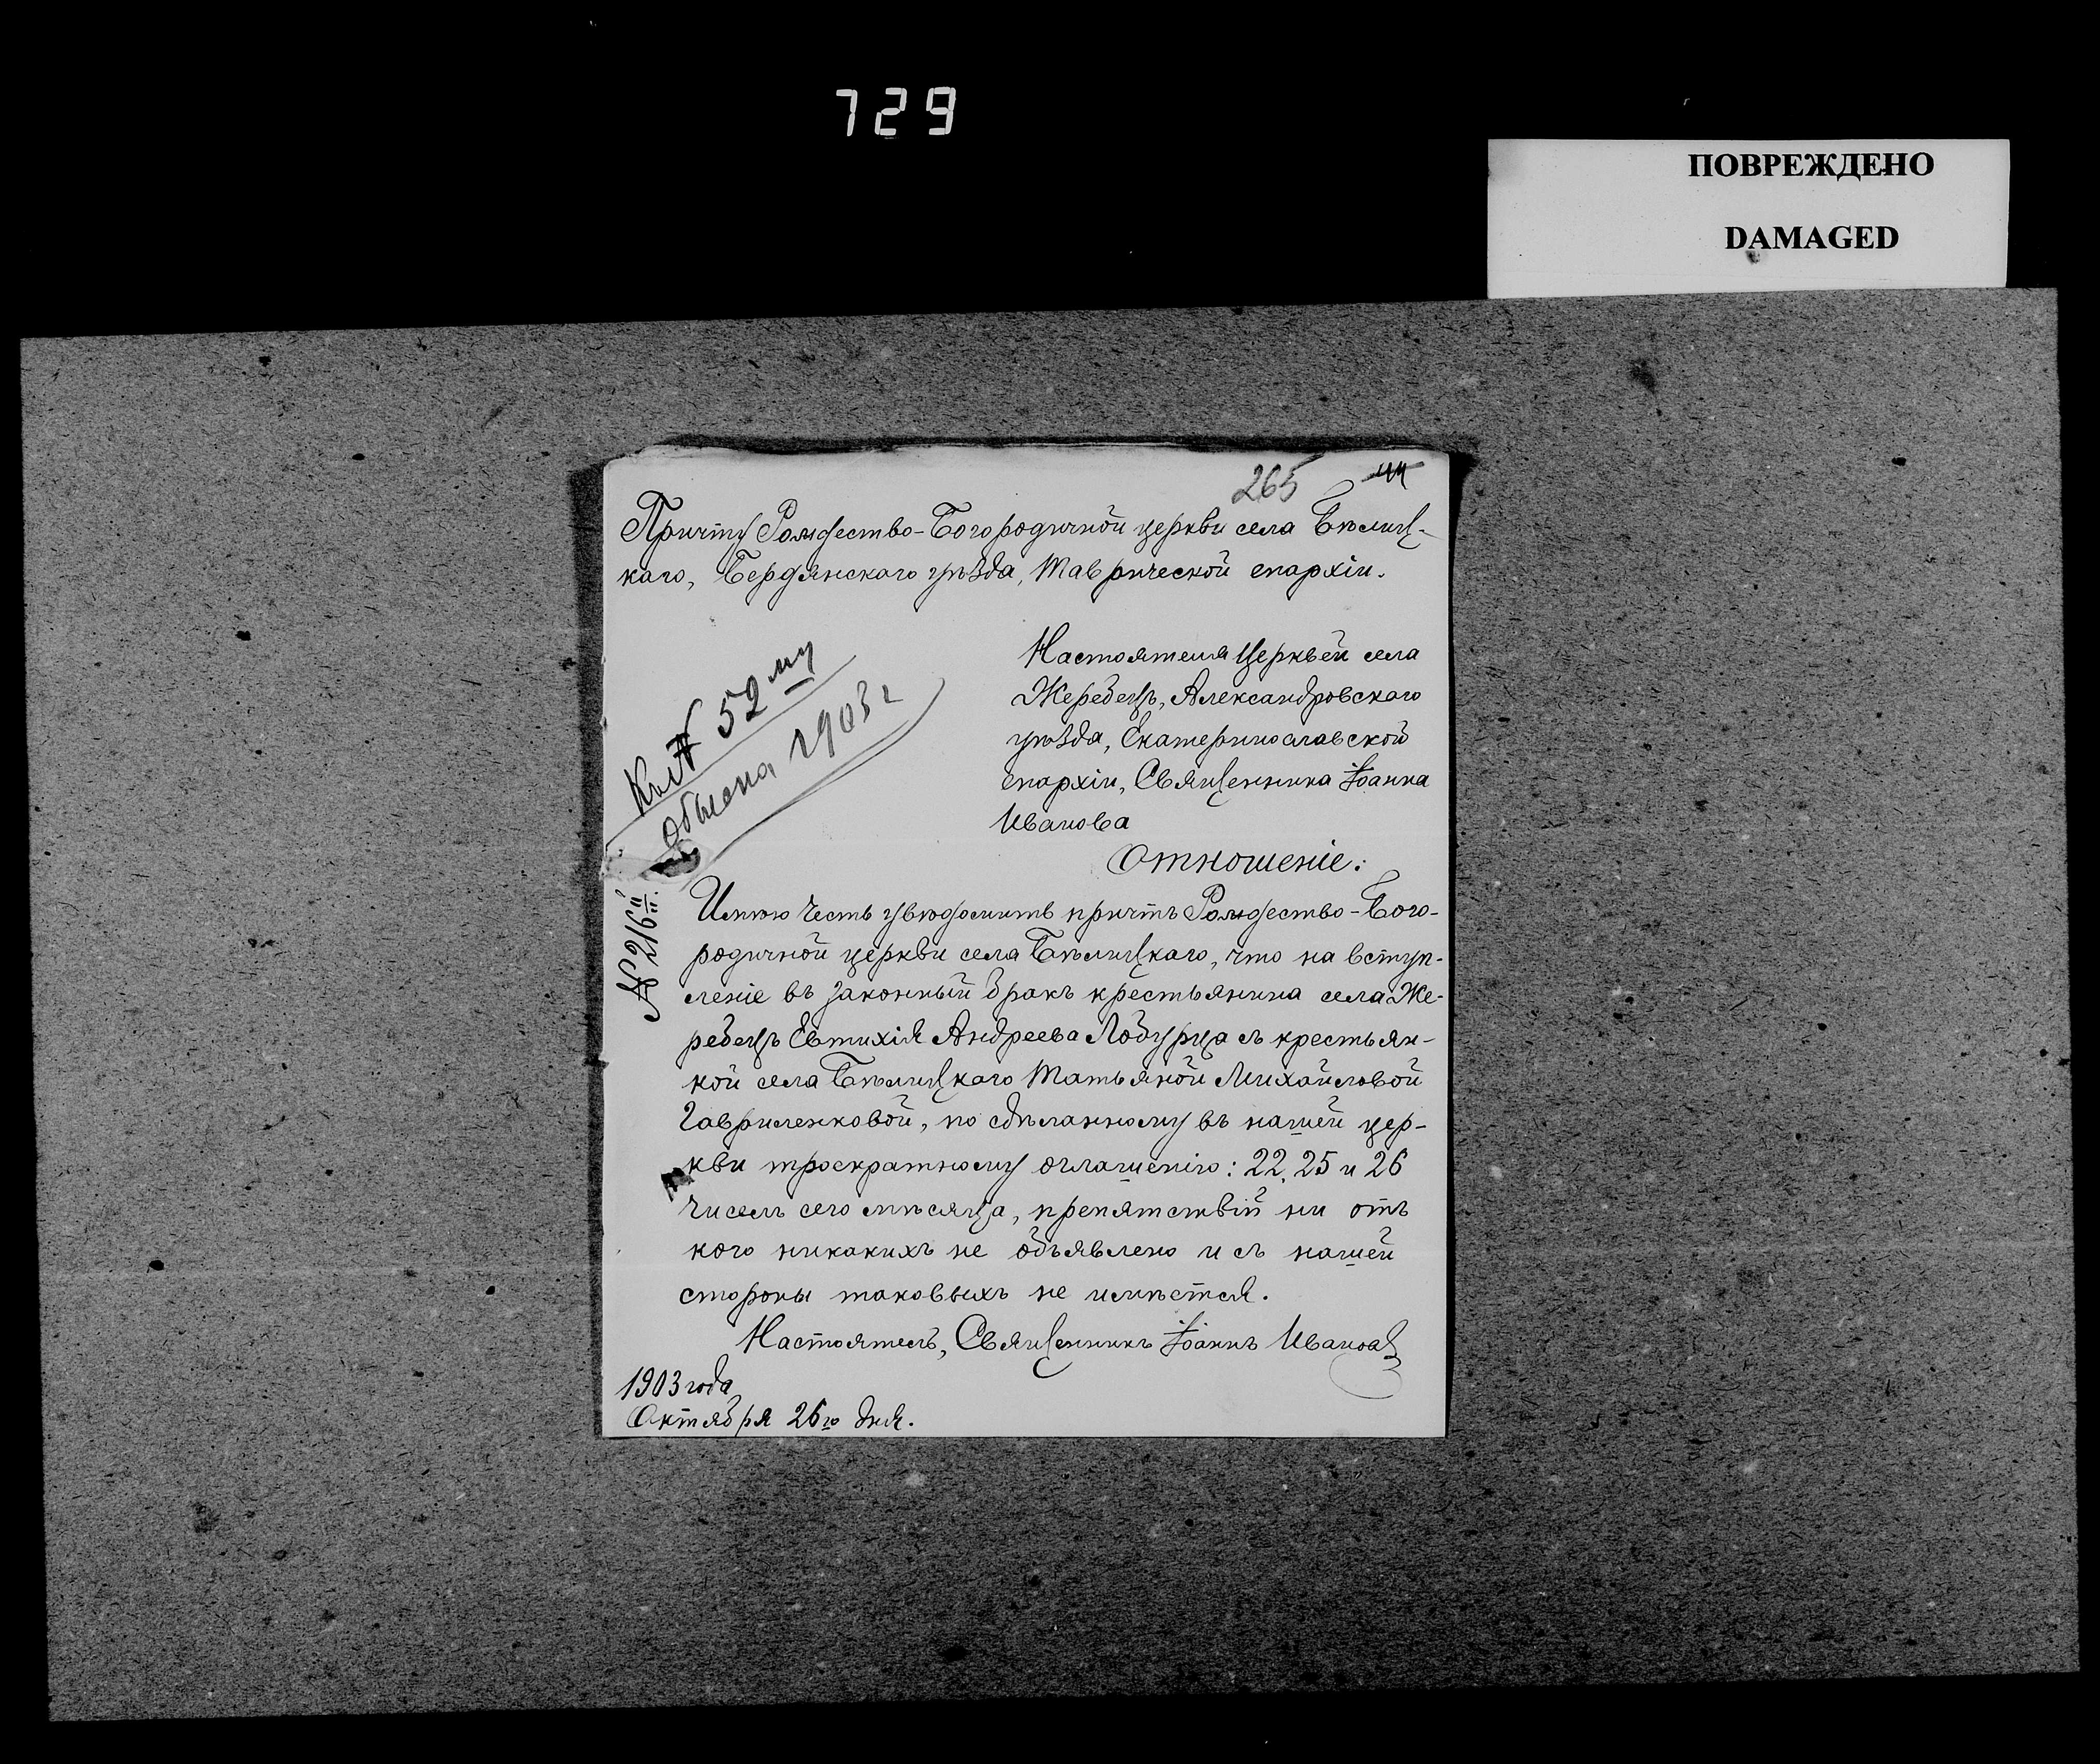 729
ПОВРЕЖДЕНО
DAMAGED
265 44
Причту Рождество-Богородичной церкви села Бѣлиц-
каго, Бердянскаго уѣзда, Таврической епархіи.
Настоятеля Церквей села
Жеребецъ, Александровскаго
уѣзда, Екатеринославской
епархіи, Священника Іоанна
Иванова
Отношеніе.
Къ № 52му
обыска 1903 г
№ 216й
Имѣю честь увѣдомить причтъ Рождество-Бого-
родичной церкви села Бѣлицкаго, что на вступ-
леніе въ законный бракъ крестьянина села Же-
ребецъ Евтихія Андреева Лобурца съ крестьян-
кой села Бѣлицкаго Татьяной Михайловой
Гавриленковой, по сдѣланному въ нашей цер-
кви троекратному оглашенію: 22, 25 и 26
чиселъ сего мѣсяца, препятствій ни отъ
кого никакихъ не объявлено и съ нашей
стороны таковыхъ не имѣется.
Настоятель, Священникъ Іоаннъ Ивановъ
1903 года
Октября 26го дня.